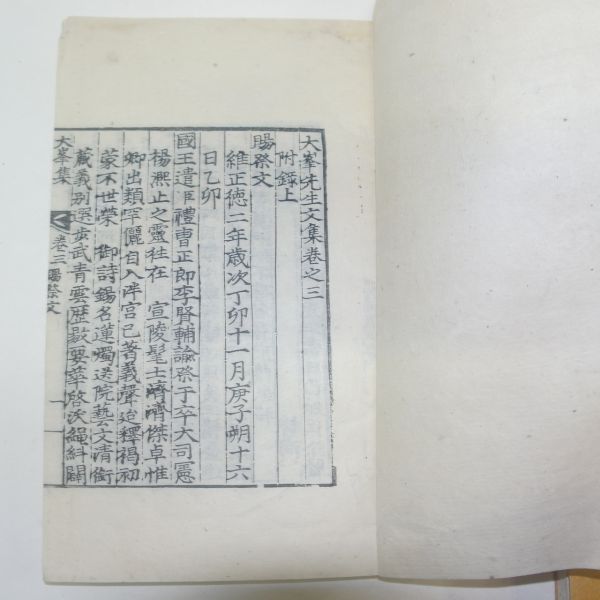 大峯先生文集卷之三
附錄上
賜祭文
維正德二年歲次丁卯十一月庚子朔十六
日乙卯
國王遣臣禮曹正郎李賢輔諭祭于卒大司憲
楊熙止之靈徃在 宣陵髦士濟濟傑卓惟
卿出類罕儷自入泮宮已著義聲迨釋褐初
蒙不世榮 御詩錫名蓮燭送院藝文清銜
藏義別選步武青雲歷敭要華啓沃繩糾闕
大峯集 卷三 賜祭文 一